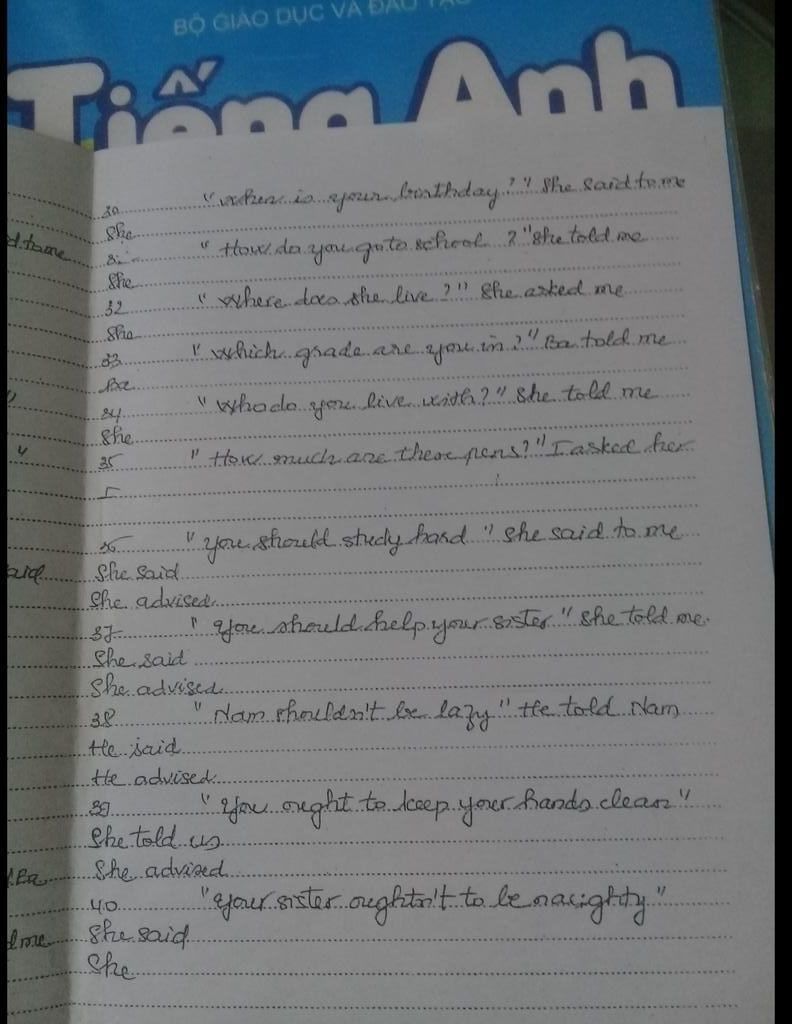 BỘ GIÁO DỤC VÀ ĐÀO TẠO
Tiếng Anh
30 "When is your birthday?" She said to me
She
31 "How do you go to school ? "She told me
d to me
She
32 "Where does she live ?" She asked me
She
33 "Which grade are you in?" Ba told me
Ba
34 "Who do you live with?" She told me
She
35 "How much are these pens?" I asked her
I
36 "You should study hard " She said to me
She said
She advised
37 " You should help your sister " She told me.
She said
She advised
38 "Nam shouldn't be lazy" He told Nam
He said
He advised
39 "You ought to keep your hands clean"
She told us
She advised
Ba
40 "Your sister oughtn't to be naughty"
d me
She said
She